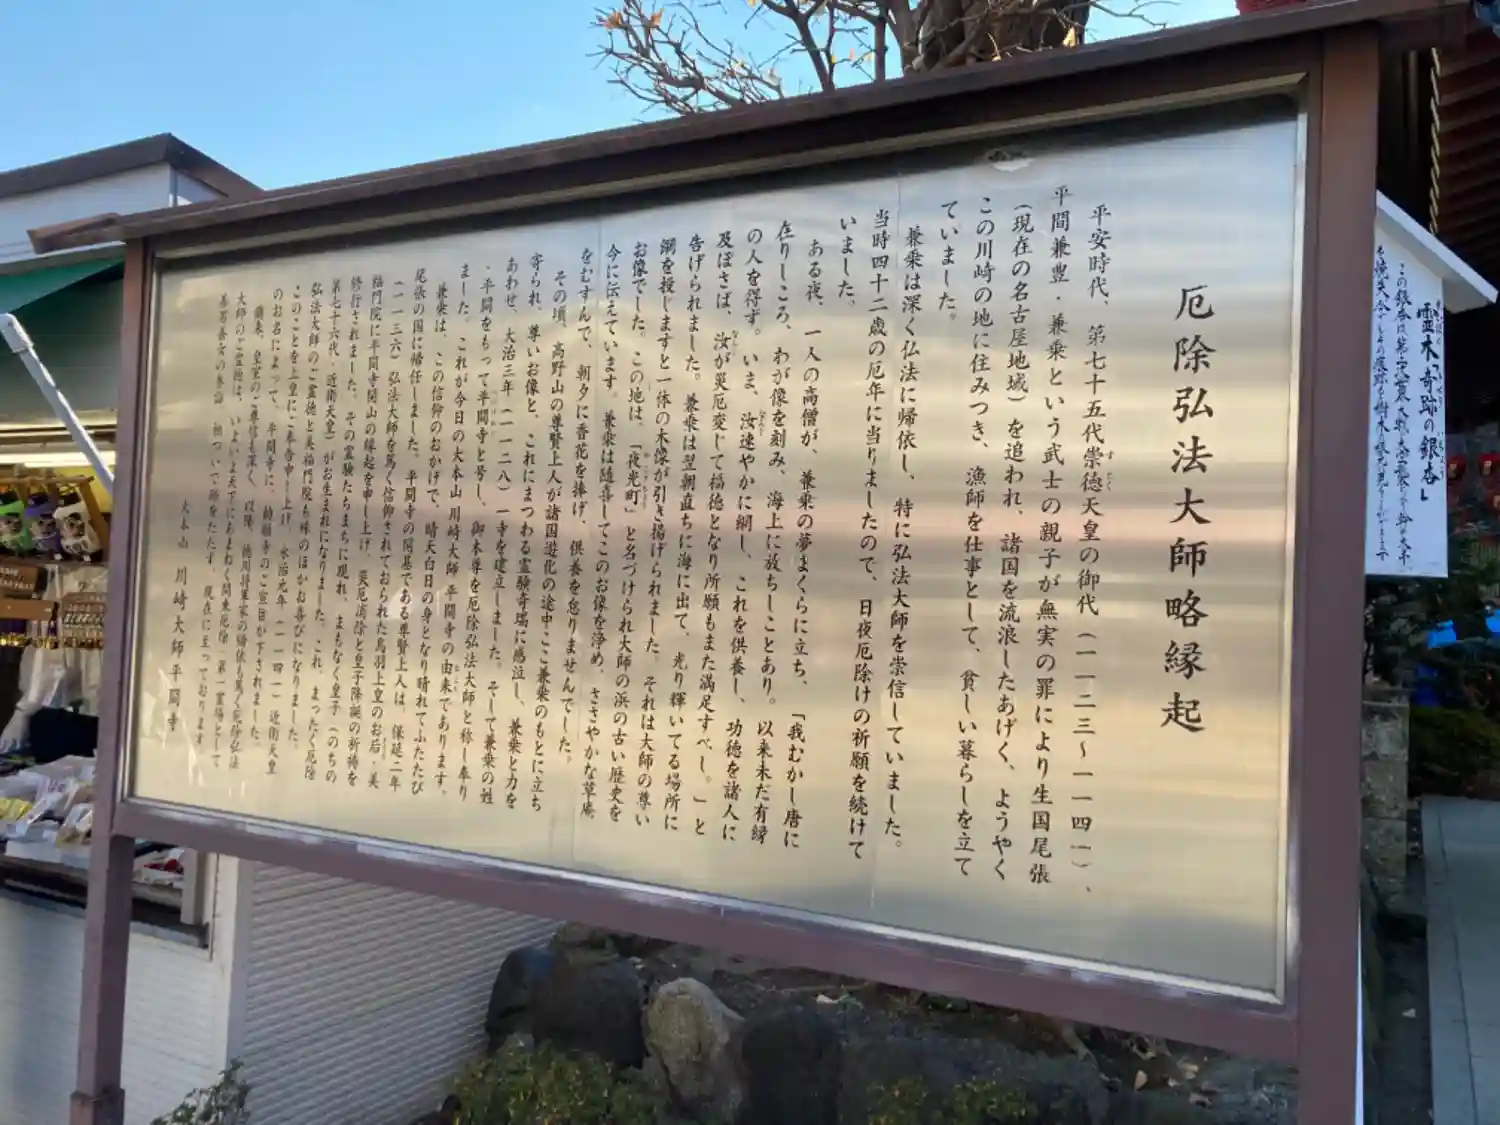 厄除弘法大師略縁起
平安時代、第七十五代崇徳天皇の御代（一一二三〜一一四一）、
平間兼豊・兼乗という武士の親子が無実の罪により生国尾張
（現在の名古屋地域）を追われ、諸国を流浪したあげく、ようやく
この川崎の地に住みつき、漁師を仕事として、貧しい暮らしを立て
ていました。
兼乗は深く仏法に帰依し、特に弘法大師を崇信していました。
当時四十二歳の厄年に当りましたので、日夜厄除けの祈願を続けて
いました。
ある夜、一人の高僧が、兼乗の夢まくらに立ち、「我むかし唐に
在りしころ、わが像を刻み、海上に放ちしことあり。以来未だ有縁
の人を得ず。いま、汝速やかに網し、これを供養し、功徳を諸人に
及ぼさば、汝が災厄変じて福徳となり所願もまた満足すべし。」と
告げられました。兼乗は翌朝直ちに海に出て、光り輝いてる場所に
網を投じますと一体の木像が引き揚げられました。それは大師の尊い
お像でした。この地は、「夜光町」と名づけられ大師の浜の古い歴史を
今に伝えています。兼乗は随喜してこのお像を浄め、ささやかな草庵
をむすんで、朝夕に香花を捧げ、供養を怠りませんでした。
その頃、高野山の尊賢上人が諸国遊化の途中ここ兼乗のもとに立ち
寄られ、尊いお像と、これにまつわる霊験奇瑞に感泣し、兼乗と力を
あわせ、大治三年（一一二八）一寺を建立しました。そして兼乗の姓
・平間をもって平間寺と号し、御本尊を厄除弘法大師と称し奉り
ました。これが今日の大本山川崎大師平間寺の由来であります。
兼乗は、この信仰のおかげで、晴天白日の身となり晴れてふたたび
尾張の国に帰任しました。平間寺の開基である尊賢上人は、保延二年
（一一三六）弘法大師を篤く信仰されておられた鳥羽上皇のお后・美
福門院に平間寺開山の縁起を申し上げ、災厄消除と皇子降誕の祈祷を
修行されました。その霊験たちまちに現れ、まもなく皇子（のちの
第七十六代・近衛天皇）がお生まれになりました。これ、まったく厄除
弘法大師のご霊徳と美福門院も殊のほかお喜びになりました。
このことを上皇にご奉告申し上げ、永治元年（一一四一）近衛天皇
のお名によって、平間寺に、勅願寺のご宣旨が下されました。
爾来、皇室のご尊信も深く、以降、徳川将軍家の帰依も篤く厄除弘法
大師のご霊徳は、いよいよ天下にあまねく関東厄除・第一霊場として
善男善女の参詣、相ついで跡をたたず、現在に至っております。
大本山 川崎大師平間寺
霊木「奇跡の銀杏」